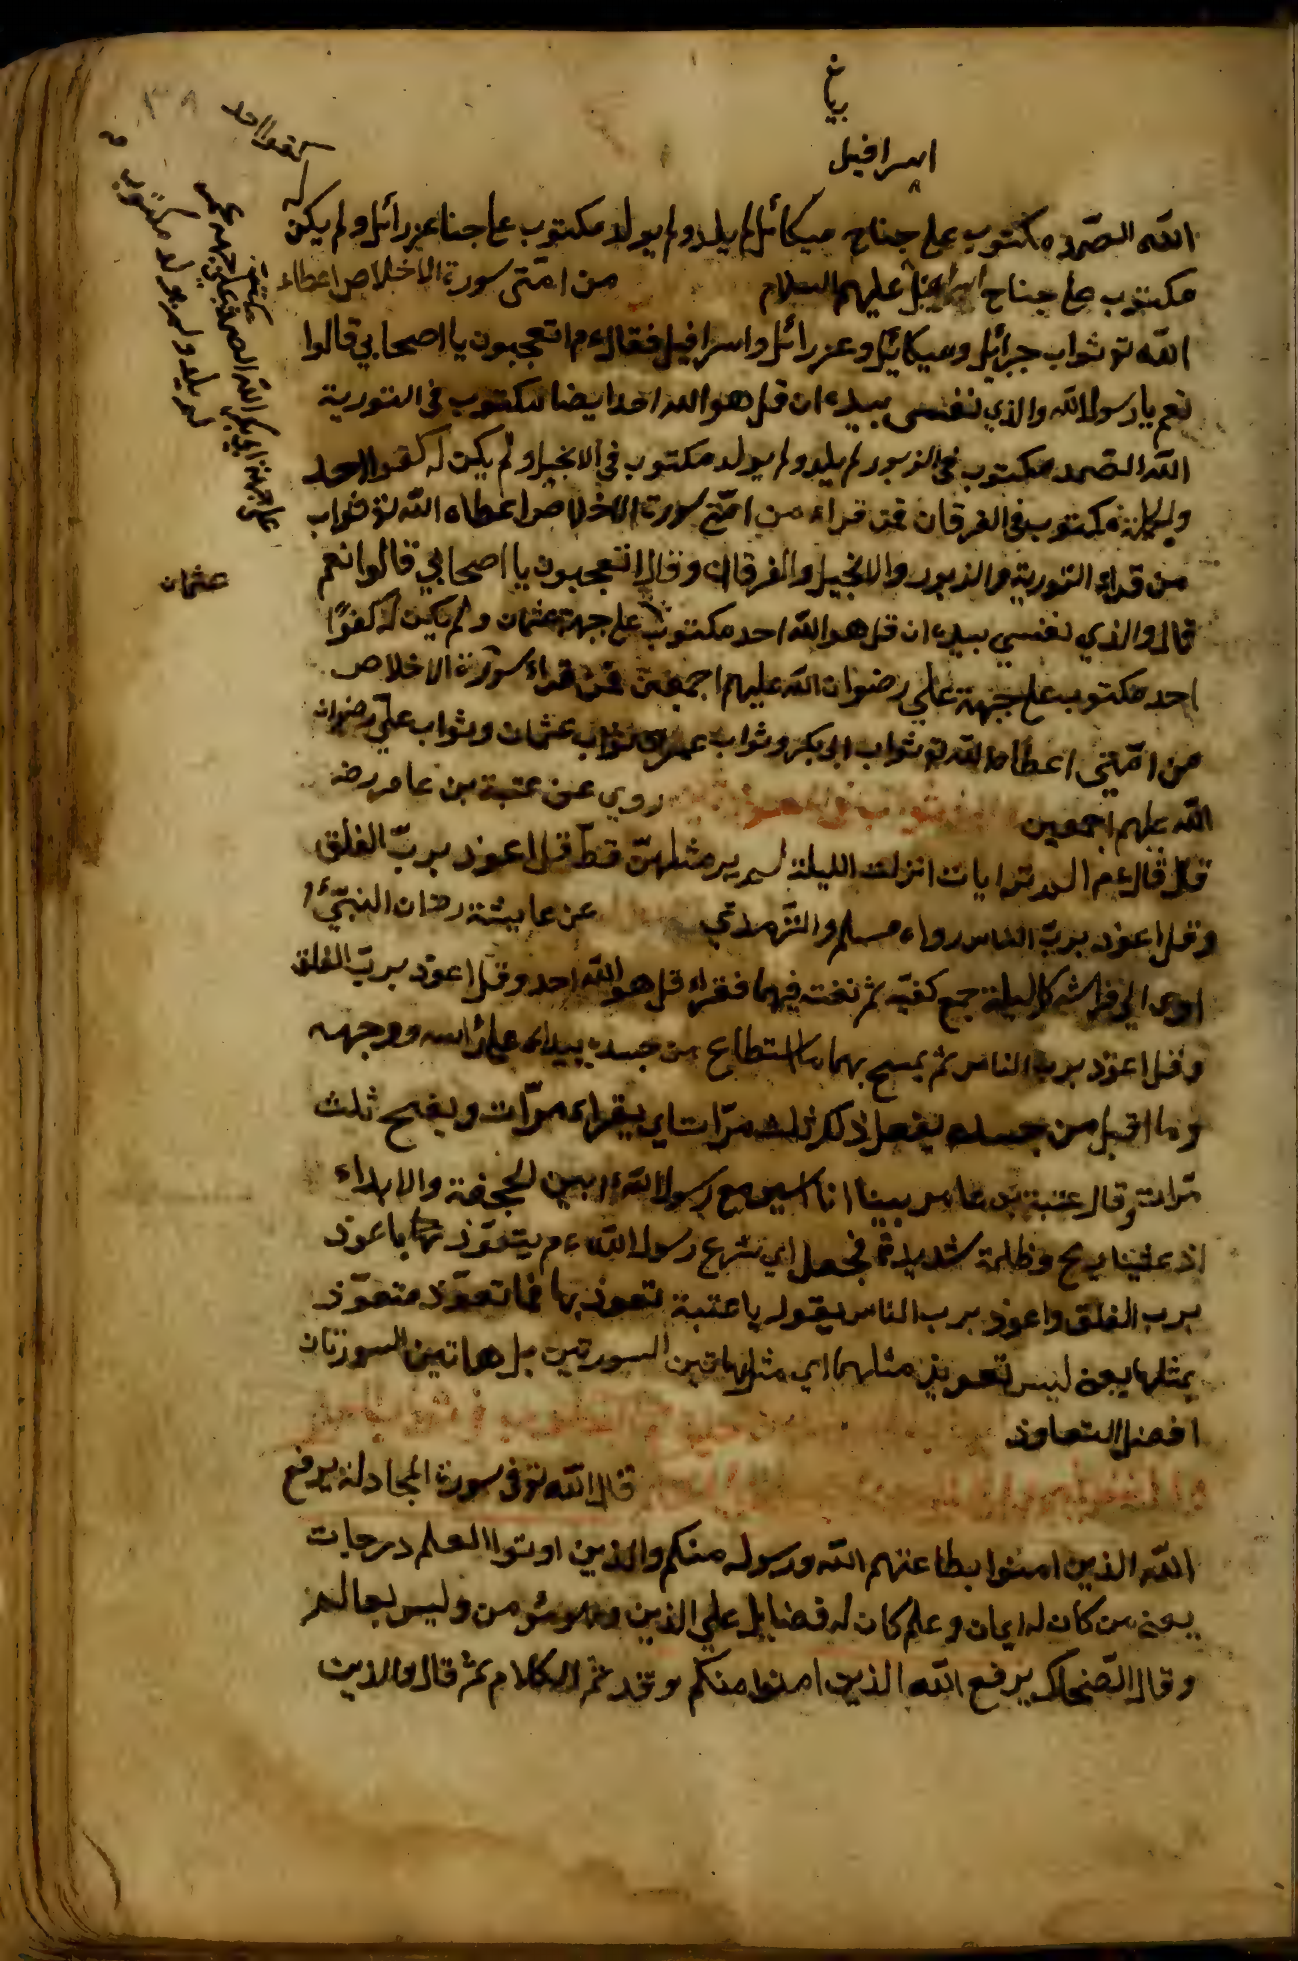 اسرافيل
الله الصمد مكتوب على جناح ميكائل لم يلد ولم يولد مكتوب على جناح عزرائل ولم يكن له
كفوا احد
مكتوب على جناح عليهم السلام من امتى سورة الاخلاص اعطاء
الله تو ثواب جبرائل وميكائل وعزرائل واسرافيل فقال عم اتعجبون يا اصحابي قالوا
نعم يا رسول الله والذي نفسى بيده ان قل هو الله احد ايضا مكتوب فى التورية
الله الصمد مكتوب فى الزبور لم يلد ولم يولد مكتوب في الانجيل ولم يكن له كفوا احد
مكتوب فى الفرقان فمن قراء من امتى سورة الاخلاص اعطاه الله تو ثواب
من قراء التورية والزبور والانجيل والفرقان وقال اتعجبون يا اصحابي قالوا نعم
قال والذي نفسي بيده ان قل هو الله احد مكتوب على جبهة عثمان ولم يكن له كفوًا
احد مكتوب على جبهة علي رضوان الله عليهم اجمعين فمن قراء سورة الاخلاص
من امتى اعطاه الله تو ثواب ابى بكر وثواب عمر وثواب عثمان وثواب على رضوان
الله عليهم اجمعين روي عن عتبة بن عامر رضه
قال قال عم الم تر ايات انزلت الليلة لم ير مثلهن قط قل اعوذ برب الفلق
وقل اعوذ برب الناس رواه مسلم والترمذي عن عايشة رضه ان النبي
اوى الى فراشه كل ليلة جمع كفيه ثم نفث فيهما فقراء قل هو الله احد وقل اعوذ برب الفلق
وقل اعوذ برب الناس ثم يمسح بهما ما استطاع من جسده يبداء على رأسه ووجهه
وما اقبل من جسده يفعل ذلك ثلث مرات اي يقراء مرات ويمسح ثلث
مرات وقال عتبة بن عامر بينا انا اسير مع رسول الله بين الجحفة والابواء
اذ غشينا ريح وظلمة شديدة فجعل اي شرع رسول الله عم يتعوذ باعوذ
برب الفلق واعوذ برب الناس يقول يا عتبة تعوذ بها فما تعوذ متعوذ
بمثلها يعنى ليس تعويذ مثلهما اي مثل هاتين السورتين بل هاتين السورتان
افضل التعاوذ
قال الله تو فى سورة المجادلة يرفع
الله الذين امنوا بطاعتهم الله ورسوله منكم والذين اوتوا العلم درجات
يعنى من كان له ايمان وعلم كان له فضايل على الذين وهو مؤمن وليس بعالم
وقال الضحاك يرفع الله الذين امنوا منكم وقد تم الكلام ثم قال والذين
لم يلد ولم يولد مكتوب
عثمان